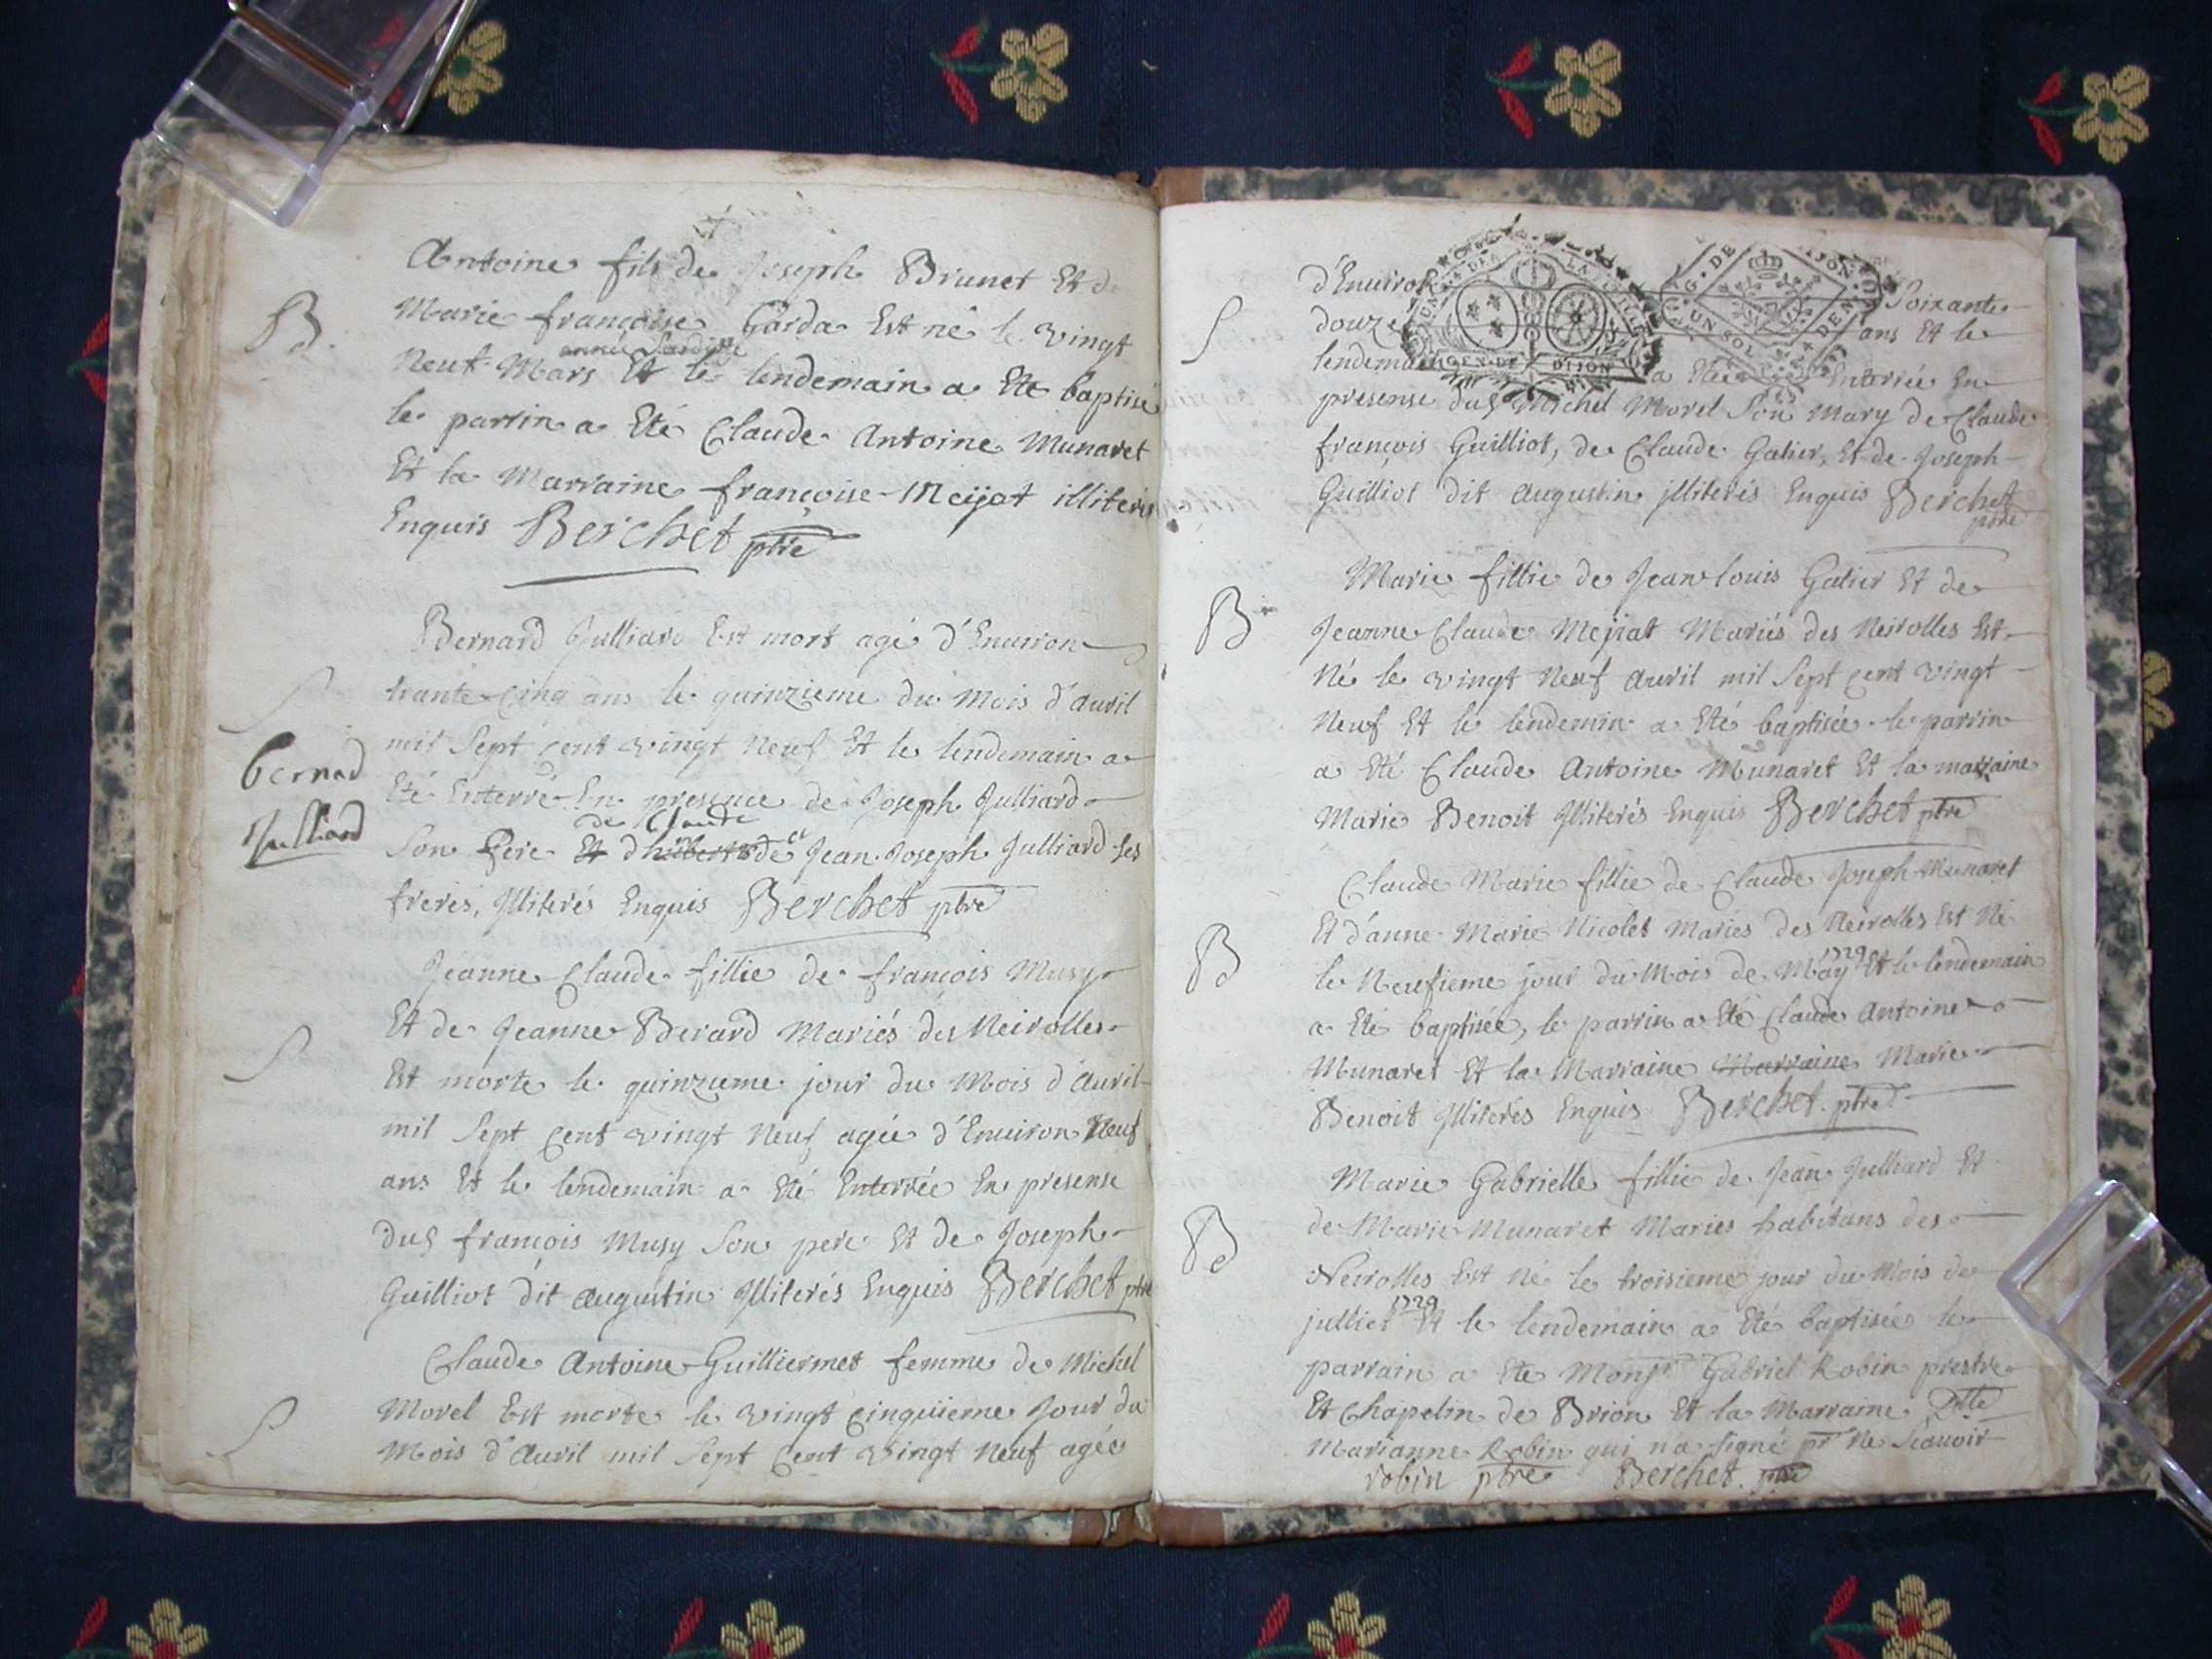 Antoine fils de Joseph Brunet Et de
B.
Marie françoise Garda Est né le vingt
année Susdite
Neuf Mars Et le lendemain a Eté baptisé
le parrin a Eté Claude Antoine Munaret
Et la Marraine françoise Meijat illiterés
Enquis Berchet ptre
Bernard Julliard Est mort agé d'Enuiron
S
trante Cinq ans le quinzieme du Mois d'auril
mil Sept Cent vingt Neuf Et le lendemain a
bernad
Julliard
Eté Enterré En presence de Joseph Julliard
de Claude
Son Pere Et d'hubert et de Jean Joseph Julliard Ses
freres, Jlliterés Enquis Berchet ptre
Jeanne Claude fillie de françois Musy
S
Et de Jeanne Berard Mariés des Neirolles
Est morte le quinzieme jour du Mois d'Auril
mil Sept Cent vingt Neuf agée d'Enuiron Neuf
ans Et le lendemain a Eté Enterrée En presense
duS françois Musy Son pere Et de Joseph
Guilliot dit augustin Jlliterés Enquis Berchet ptre
Claude Antoine Guilliermet femme de Michel
S
Morel Est morte le vingt Cinquieme Jour du
Mois d'Auril mil Sept Cent vingt Neuf agée
d'Enuiron Soixante
S
douze ans Et le
lendemain a Etée Enterrée En
GEN. DE DIJON
G. DE DIJON
UN SOL 4 DEN
presense duS Michel Morel Son Mary de Claude
françois Guilliot, de Claude Galier, Et de Joseph
Guilliot dit Augustin jlliterés Enquis Berchet
ptre
Marie fillie de Jean louis Galier Et de
B
Jeanne Claude Mejiat Mariés des Neirolles Est
Né le vingt Neuf Auril mil Sept Cent vingt
Neuf Et le lendemin a Eté baptisée le parrin
a Eté Claude Antoine Munaret Et la marraine
Marie Benoit Jlliterés Enquis Berchet ptre
Claude Marie fillie de Claude Joseph Munaret
B
Et d'anne Marie Nicolet Mariés des Neirolles Est Né
1729
le Neufieme jour du Mois de May Et le lendemain
a Eté baptisée, le parrin a Eté Claude Antoine
Munaret Et la Marraine Marraine Marie
Benoit Jlliterés Enquis Berchet ptre
Marie Gabrielle fillie de Jean Julliard Et
B
de Marie Munaret Maries habitans des
Neirolles Est Né le troisieme jour du Mois de
1729
julliet Et le lendemain a Eté baptisée le
parrain a Ete Monsr Gabriel Robin prestre
Et Chapelin de Brion Et la Marraine Dlle
Marianne Robin qui na Signé pr Ne Scauoir
robin ptre Berchet. ptre